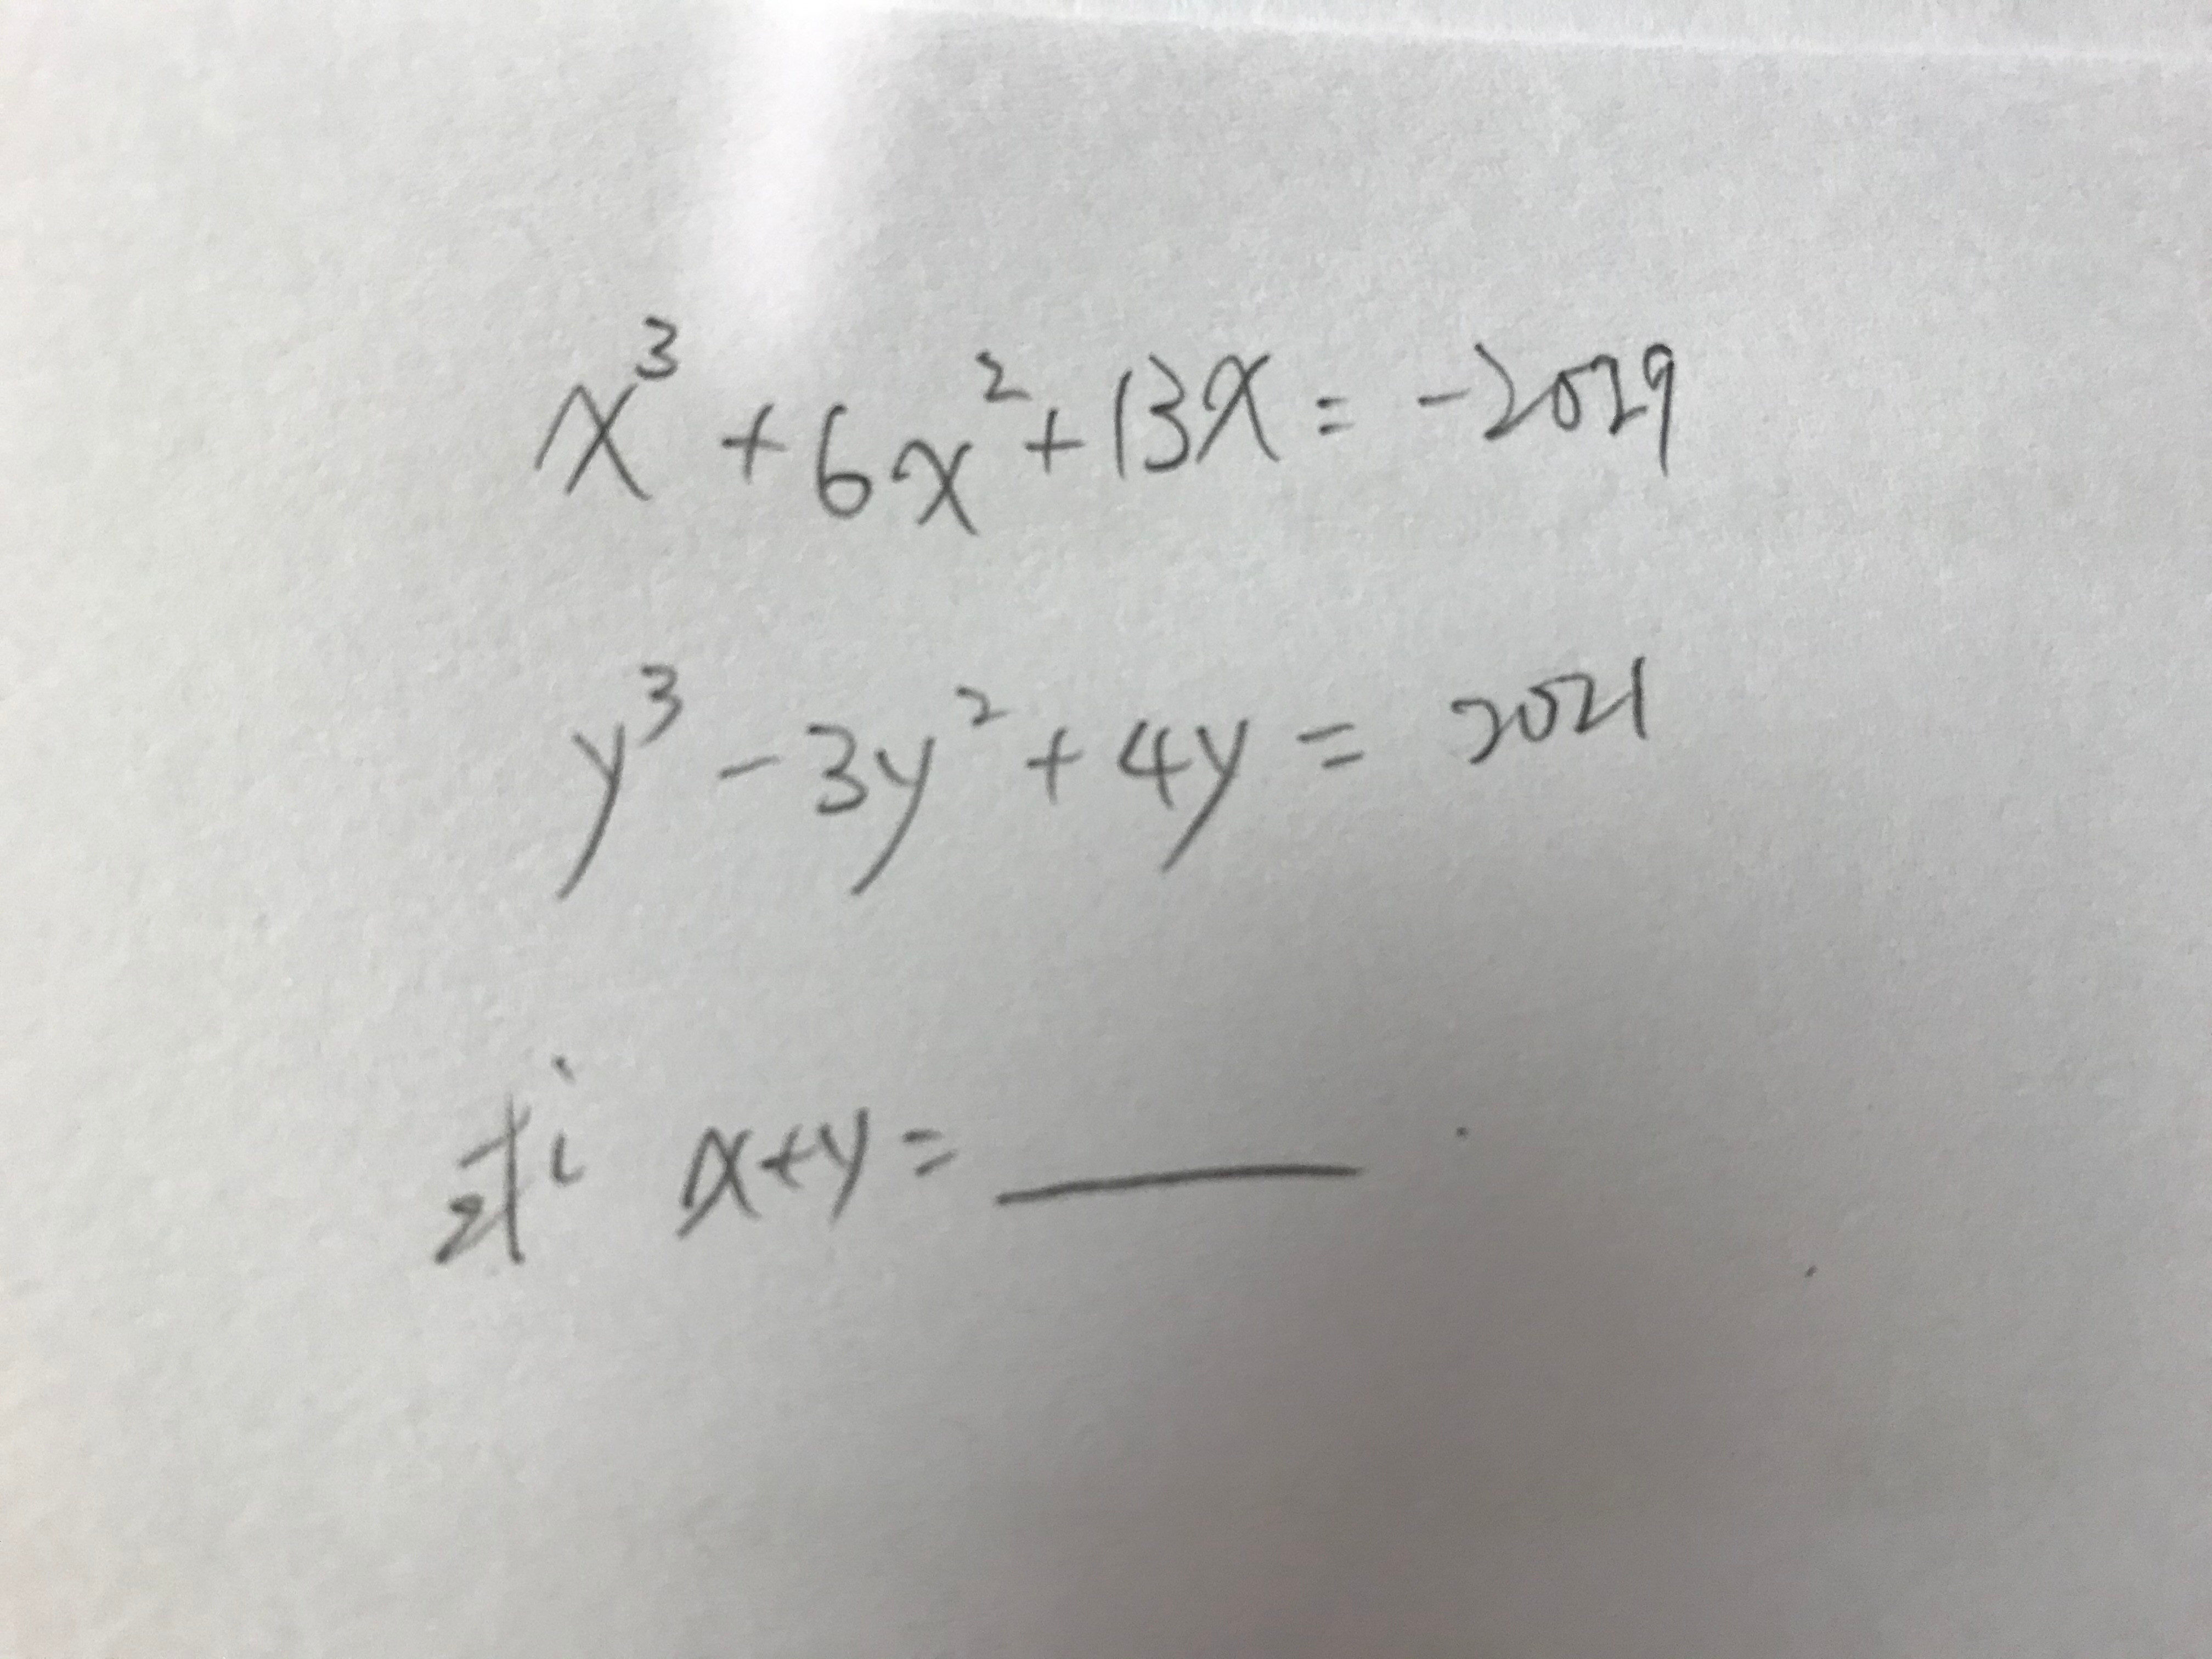 x³ + 6x² + 13x = -2029
y³ - 3y² + 4y = 2021
求 x+y = ______